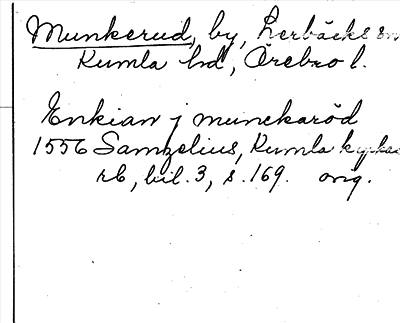 Munkerud, by, Lerbäcks sn
Kumla hd, Örebro l.
Enkian j munckaröd
1556 Samzelius, Kumla kyrkas
rb, bil. 3, s. 169. orig.